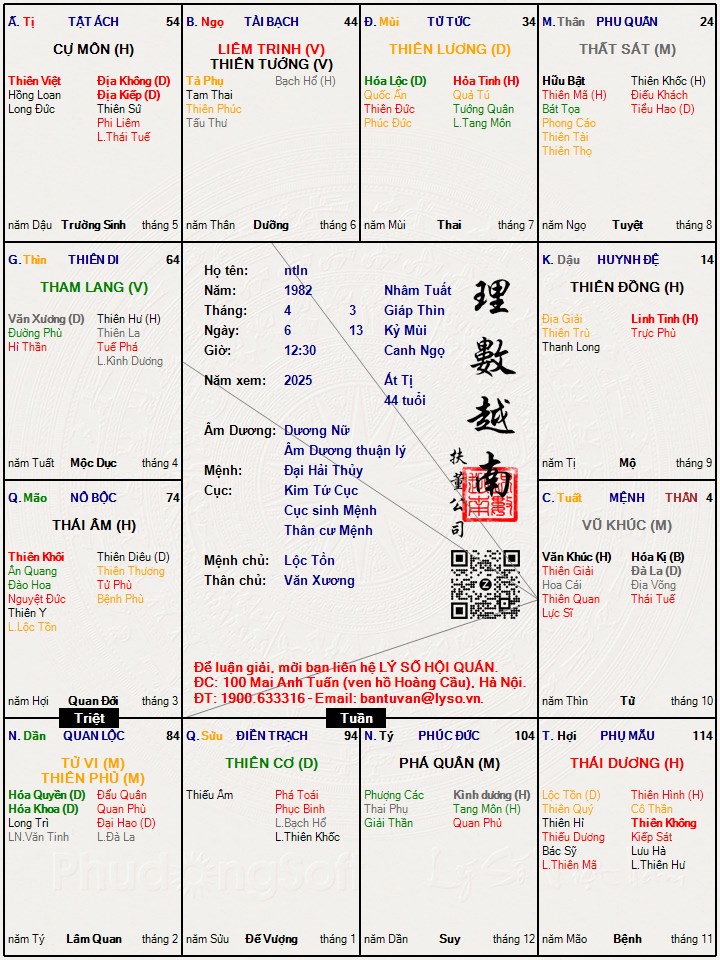 Ấ. Tị TẬT ÁCH 54
CỰ MÔN (H)
Thiên Việt Địa Không (D)
Hồng Loan Địa Kiếp (D)
Long Đức Thiên Sứ
Phi Liêm
L.Thái Tuế
năm Dậu Trường Sinh tháng 5
B. Ngọ TÀI BẠCH 44
LIÊM TRINH (V)
THIÊN TƯỚNG (V)
Tả Phụ Bạch Hổ (H)
Tam Thai
Thiên Phúc
Tấu Thư
năm Thân Dưỡng tháng 6
Đ. Mùi TỬ TỨC 34
THIÊN LƯƠNG (D)
Hóa Lộc (D) Hỏa Tinh (H)
Quốc Ấn Quả Tú
Thiên Đức Tướng Quân
Phúc Đức L.Tang Môn
năm Mùi Thai tháng 7
M. Thân PHU QUÂN 24
THẤT SÁT (M)
Hữu Bật Thiên Khốc (H)
Thiên Mã (H) Điếu Khách
Bát Tọa Tiểu Hao (D)
Phong Cáo
Thiên Tài
Thiên Thọ
năm Ngọ Tuyệt tháng 8
G. Thìn THIÊN DI 64
THAM LANG (V)
Văn Xương (D) Thiên Hư (H)
Đường Phù Thiên La
Hỉ Thần Tuế Phá
L.Kình Dương
năm Tuất Mộc Dục tháng 4
Họ tên: ntln
Năm: 1982 Nhâm Tuất
Tháng: 4 3 Giáp Thìn
Ngày: 6 13 Kỷ Mùi
Giờ: 12:30 Canh Ngọ
Năm xem: 2025 Ất Tị
44 tuổi
Âm Dương: Dương Nữ
Âm Dương thuận lý
Mệnh: Đại Hải Thủy
Cục: Kim Tứ Cục
Cục sinh Mệnh
Thân cư Mệnh
Mệnh chủ: Lộc Tồn
Thân chủ: Văn Xương
理數越南
扶董公司
Để luận giải, mời bạn liên hệ LÝ SỐ HỘI QUÁN.
ĐC: 100 Mai Anh Tuấn (ven hồ Hoàng Cầu), Hà Nội.
ĐT: 1900.633316 - Email: bantuvan@lyso.vn.
K. Dậu HUYNH ĐỆ 14
THIÊN ĐỒNG (H)
Địa Giải Linh Tinh (H)
Thiên Trù Trực Phù
Thanh Long
năm Tị Mộ tháng 9
Q. Mão NÔ BỘC 74
THÁI ÂM (H)
Thiên Khôi Thiên Diêu (D)
Ân Quang Thiên Thương
Đào Hoa Tử Phù
Nguyệt Đức Bệnh Phù
Thiên Y
L.Lộc Tồn
năm Hợi Quan Đới tháng 3
C. Tuất MỆNH THÂN 4
VŨ KHÚC (M)
Văn Khúc (H) Hóa Kị (B)
Thiên Giải Đà La (D)
Hoa Cái Địa Võng
Thiên Quan Thái Tuế
Lực Sĩ
năm Thìn Tử tháng 10
Triệt
Tuần
N. Dần QUAN LỘC 84
TỬ VI (M)
THIÊN PHỦ (M)
Hóa Quyền (D) Đẩu Quân
Hóa Khoa (D) Quan Phù
Long Trì Đại Hao (D)
LN.Văn Tinh L.Đà La
năm Tý Lâm Quan tháng 2
Q. Sửu ĐIỀN TRẠCH 94
THIÊN CƠ (D)
Thiếu Âm Phá Toái
Phục Binh
L.Bạch Hổ
L.Thiên Khốc
năm Sửu Đế Vượng tháng 1
N. Tý PHÚC ĐỨC 104
PHÁ QUÂN (M)
Phượng Các Kình dương (H)
Thai Phụ Tang Môn (H)
Giải Thần Quan Phủ
năm Dần Suy tháng 12
T. Hợi PHỤ MẪU 114
THÁI DƯƠNG (H)
Lộc Tồn (D) Thiên Hình (H)
Thiên Quý Cô Thần
Thiên Hỉ Thiên Không
Thiếu Dương Kiếp Sát
Bác Sỹ Lưu Hà
L.Thiên Mã L.Thiên Hư
năm Mão Bệnh tháng 11